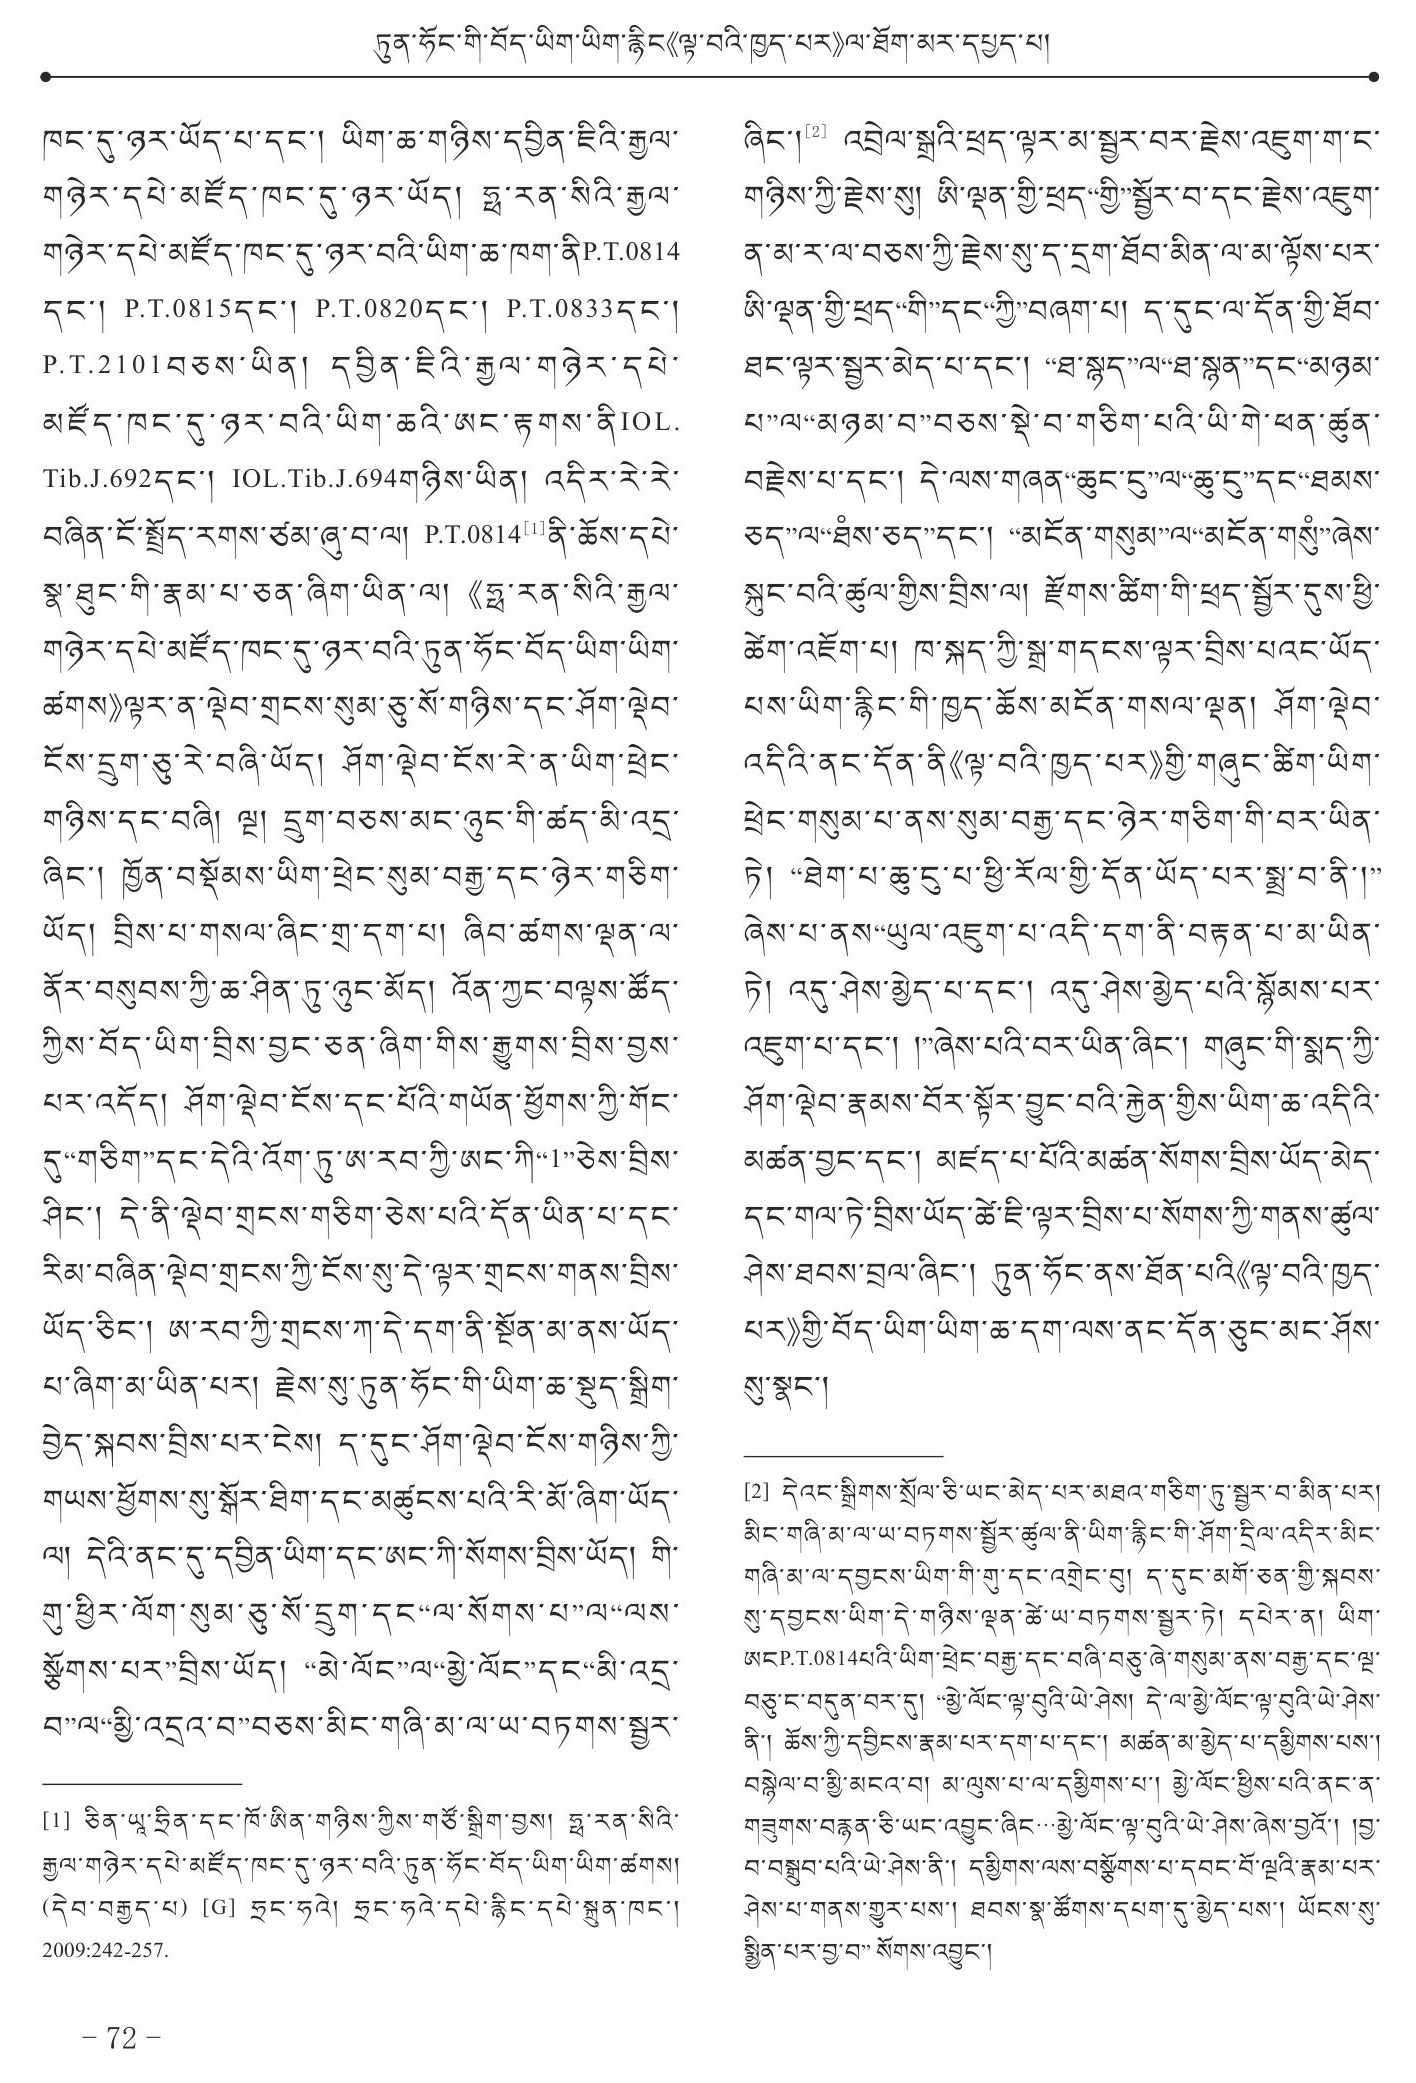 ཏུན་ཧོང་གི་བོད་ཡིག་ཡིག་རྙིང《ལྟ་བའི་ཁྱད་པར》ལ་ཐོག་མར་དཔྱད་པ།
ཁང་དུ་ཉར་ཡོད་པ་དང་། ཡིག་ཆ་གཉིས་དབྱིན་ཇིའི་རྒྱལ་
གཉེར་དཔེ་མཛོད་ཁང་དུ་ཉར་ཡོད། ཧྥ་རན་སིའི་རྒྱལ་
གཉེར་དཔེ་མཛོད་ཁང་དུ་ཉར་བའི་ཡིག་ཆ་ཁག་ནིP.T.0814
དང་། P.T.0815དང་། P.T.0820དང་། P.T.0833དང་།
P.T.2101བཅས་ཡིན། དབྱིན་ཇིའི་རྒྱལ་གཉེར་དཔེ་
མཛོད་ཁང་དུ་ཉར་བའི་ཡིག་ཆའི་ཨང་རྟགས་ནིIOL.
Tib.J.692དང་། IOL.Tib.J.694གཉིས་ཡིན། འདིར་རེ་རེ་
བཞིན་ངོ་སྤྲོད་རགས་ཙམ་ཞུ་བ་ལ། P.T.0814[1]ནི་ཆོས་དཔེ་
སྣ་ཐུང་གི་རྣམ་པ་ཅན་ཞིག་ཡིན་ལ། 《ཧྥ་རན་སིའི་རྒྱལ་
གཉེར་དཔེ་མཛོད་ཁང་དུ་ཉར་བའི་ཏུན་ཧོང་བོད་ཡིག་ཡིག་
ཚགས》ལྟར་ན་ལྡེབ་གྲངས་སུམ་ཅུ་སོ་གཉིས་དང་ཤོག་ལྡེབ་
ངོས་དྲུག་ཅུ་རེ་བཞི་ཡོད། ཤོག་ལྡེབ་ངོས་རེ་ན་ཡིག་ཕྲེང་
གཉིས་དང་བཞི། ལྔ། དྲུག་བཅས་མང་ཉུང་གི་ཚད་མི་འདྲ་
ཞིང་། ཁྱོན་བསྡོམས་ཡིག་ཕྲེང་སུམ་བརྒྱ་དང་ཉེར་གཅིག་
ཡོད། བྲིས་པ་གསལ་ཞིང་གྲ་དག་པ། ཞིབ་ཚགས་ལྡན་ལ་
ནོར་བསུབས་ཀྱི་ཆ་ཤིན་ཏུ་ཉུང་མོད། འོན་ཀྱང་བལྟས་ཚོད་
ཀྱིས་བོད་ཡིག་བྲིས་བྱང་ཅན་ཞིག་གིས་རྒྱུགས་བྲིས་བྱས་
པར་འདོད། ཤོག་ལྡེབ་ངོས་དང་པོའི་གཡོན་ཕྱོགས་ཀྱི་གོང་
དུ“གཅིག”དང་དེའི་འོག་ཏུ་ཨ་རབ་ཀྱི་ཨང་ཀི“1”ཅེས་བྲིས་
ཤིང་། དེ་ནི་ལྡེབ་གྲངས་གཅིག་ཅེས་པའི་དོན་ཡིན་པ་དང་
རིམ་བཞིན་ལྡེབ་གྲངས་ཀྱི་ངོས་སུ་དེ་ལྟར་གྲངས་གནས་བྲིས་
ཡོད་ཅིང་། ཨ་རབ་ཀྱི་གྲངས་ཀ་དེ་དག་ནི་སྔོན་མ་ནས་ཡོད་
པ་ཞིག་མ་ཡིན་པར། རྗེས་སུ་ཏུན་ཧོང་གི་ཡིག་ཆ་སྡུད་སྒྲིག་
བྱེད་སྐབས་བྲིས་པར་ངེས། ད་དུང་ཤོག་ལྡེབ་ངོས་གཉིས་ཀྱི་
གཡས་ཕྱོགས་སུ་སྒོར་ཐིག་དང་མཚུངས་པའི་རི་མོ་ཞིག་ཡོད་
ལ། དེའི་ནང་དུ་དབྱིན་ཡིག་དང་ཨང་ཀི་སོགས་བྲིས་ཡོད། གི་
གུ་ཕྱིར་ལོག་སུམ་ཅུ་སོ་དྲུག་དང“ལ་སོགས་པ”ལ“ལས་
སྩོགས་པར”བྲིས་ཡོད། “མེ་ལོང”ལ“མྱེ་ལོང”དང“མི་འདྲ་
བ”ལ“མྱི་འདྲའ་བ”བཅས་མིང་གཞི་མ་ལ་ཡ་བཏགས་སྦྱར་
[1] ཅིན་ཡཱ་ཧྲིན་དང་ཁོ་ཨིན་གཉིས་ཀྱིས་གཙོ་སྒྲིག་བྱས། ཧྥ་རན་སིའི་
རྒྱལ་གཉེར་དཔེ་མཛོད་ཁང་དུ་ཉར་བའི་ཏུན་ཧོང་བོད་ཡིག་ཡིག་ཚགས།
(དེབ་བརྒྱད་པ) [G] ཧྲང་ཧའེ། ཧྲང་ཧའེ་དཔེ་རྙིང་དཔེ་སྐྲུན་ཁང་།
2009:242-257.
ཞིང་།[2] འབྲེལ་སྒྲའི་ཕྲད་ལྟར་མ་སྦྱར་བར་རྗེས་འཇུག་ག་ང་
གཉིས་ཀྱི་རྗེས་སུ། ཨི་ལྡན་གྱི་ཕྲད“གྱི”སྦྱོར་བ་དང་རྗེས་འཇུག་
ན་མ་ར་ལ་བཅས་ཀྱི་རྗེས་སུ་ད་དྲག་ཐོབ་མིན་ལ་མ་ལྟོས་པར་
ཨི་ལྡན་གྱི་ཕྲད“གི”དང“ཀྱི”བཞག་པ། ད་དུང་ལ་དོན་གྱི་ཐོབ་
ཐང་ལྟར་སྦྱར་མེད་པ་དང་། “ཐ་སྙད”ལ“ཐ་སྙན”དང“མཉམ་
པ”ལ“མཉམ་བ”བཅས་སྡེ་བ་གཅིག་པའི་ཡི་གེ་ཕན་ཚུན་
བརྗེས་པ་དང་། དེ་ལས་གཞན“ཆུང་ངུ”ལ“ཆུ་ངུ”དང“ཐམས་
ཅད”ལ“ཐཾས་ཅད”དང་། “མངོན་གསུམ”ལ“མངོན་གསུཾ”ཞེས་
སྐུང་བའི་ཚུལ་གྱིས་བྲིས་ལ། རྫོགས་ཚིག་གི་ཕྲད་སྦྱོར་དུས་ཕྱི་
ཚེག་འཇོག་པ། ཁ་སྐད་ཀྱི་སྒྲ་གདངས་ལྟར་བྲིས་པའང་ཡོད་
པས་ཡིག་རྙིང་གི་ཁྱད་ཆོས་མངོན་གསལ་ལྡན། ཤོག་ལྡེབ་
འདིའི་ནང་དོན་ནི《ལྟ་བའི་ཁྱད་པར》གྱི་གཞུང་ཚིག་ཡིག་
ཕྲེང་གསུམ་པ་ནས་སུམ་བརྒྱ་དང་ཉེར་གཅིག་གི་བར་ཡིན་
ཏེ། “ཐེག་པ་ཆུ་ངུ་པ་ཕྱི་རོལ་གྱི་དོན་ཡོད་པར་སྨྲ་བ་ནི་།”
ཞེས་པ་ནས“ཡུལ་འཇུག་པ་འདི་དག་ནི་བརྟན་པ་མ་ཡིན་
ཏེ། འདུ་ཤེས་མྱེད་པ་དང་། འདུ་ཤེས་མྱེད་པའི་སྙོམས་པར་
འཇུག་པ་དང་། །”ཞེས་པའི་བར་ཡིན་ཞིང་། གཞུང་གི་སྨད་ཀྱི་
ཤོག་ལྡེབ་རྣམས་བོར་སྟོར་བྱུང་བའི་རྐྱེན་གྱིས་ཡིག་ཆ་འདིའི་
མཚན་བྱང་དང་། མཛད་པ་པོའི་མཚན་སོགས་བྲིས་ཡོད་མེད་
དང་གལ་ཏེ་བྲིས་ཡོད་ཚེ་ཇི་ལྟར་བྲིས་པ་སོགས་ཀྱི་གནས་ཚུལ་
ཤེས་ཐབས་བྲལ་ཞིང་། ཏུན་ཧོང་ནས་ཐོན་པའི《ལྟ་བའི་ཁྱད་
པར》གྱི་བོད་ཡིག་ཡིག་ཆ་དག་ལས་ནང་དོན་ཅུང་མང་ཤོས་
སུ་སྣང་།
[2] དེའང་སྒྲིགས་སྲོལ་ཅི་ཡང་མེད་པར་མཐའ་གཅིག་ཏུ་སྦྱར་བ་མིན་པར།
མིང་གཞི་མ་ལ་ཡ་བཏགས་སྦྱོར་ཚུལ་ནི་ཡིག་རྙིང་གི་ཤོག་དྲིལ་འདིར་མིང་
གཞི་མ་ལ་དབྱངས་ཡིག་གི་གུ་དང་འགྲེང་བུ། ད་དུང་མགོ་ཅན་གྱི་སྐབས་
སུ་དབྱངས་ཡིག་དེ་གཉིས་ལྡན་ཚེ་ཡ་བཏགས་སྦྱར་ཏེ། དཔེར་ན། ཡིག་
ཨངP.T.0814པའི་ཡིག་ཕྲེང་བརྒྱ་དང་བཞི་བཅུ་ཞེ་གསུམ་ནས་བརྒྱ་དང་ལྔ་
བཅུ་ང་བདུན་བར་དུ། “མྱེ་ལོང་ལྟ་བུའི་ཡེ་ཤེས། དེ་ལ་མྱེ་ལོང་ལྟ་བུའི་ཡེ་ཤེས་
ནི་། ཆོས་ཀྱི་དབྱིངས་རྣམ་པར་དག་པ་དང་། མཚན་མ་མྱེད་པ་དམྱིགས་པས་།
བསྙེལ་བ་མྱི་མངའ་བ། མ་ལུས་པ་ལ་དམྱིགས་པ་། མྱེ་ལོང་ཕྱིས་པའི་ནང་ན་
གཟུགས་བརྙན་ཅི་ཡང་འབྱུང་ཞིང་…མྱེ་ལོང་ལྟ་བུའི་ཡེ་ཤེས་ཞེས་བྱའོ་། །བྱ་
བ་བསྒྲུབ་པའི་ཡེ་ཤེས་ནི་། དམྱིགས་ལས་བསྩོགས་པ་དབང་བོ་ལྔའི་རྣམ་པར་
ཤེས་པ་གནས་གྱུར་པས་། ཐབས་སྣ་ཚོགས་དཔག་དུ་མྱེད་པས་། ཡོངས་སུ་
སྨྱིན་པར་བྱ་བ” སོགས་འབྱུང་།
– 72 –